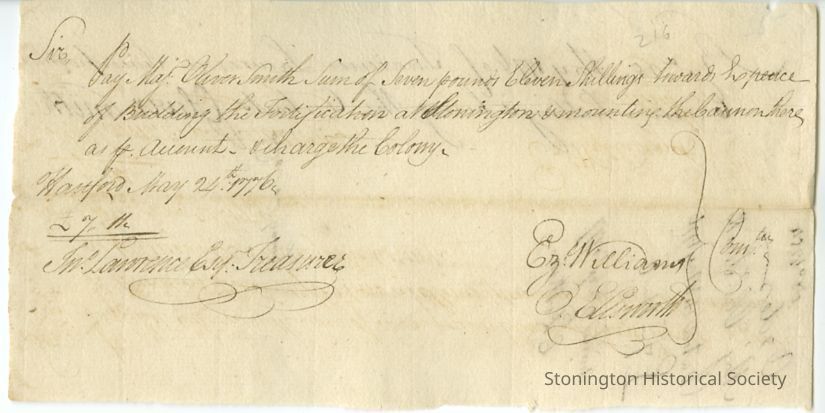 216
Sir,
Pay Majr. Oliver Smith Sum of Seven pounds Eleven Shillings towards Expence
of Building the Fortification at Stonington & mounting the Cannon there,
as pr. Account - & charge the Colony.
Hartford May 24th. 1776.
£7. 11.
Jno. Lawrence Esqr. Treasurer
Ez. Williams
O. Ellsworth
Comtee
Stonington Historical Society